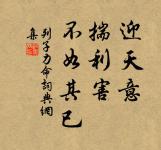 迎天意
揣利害
不如其已
列子力命詞典網
集